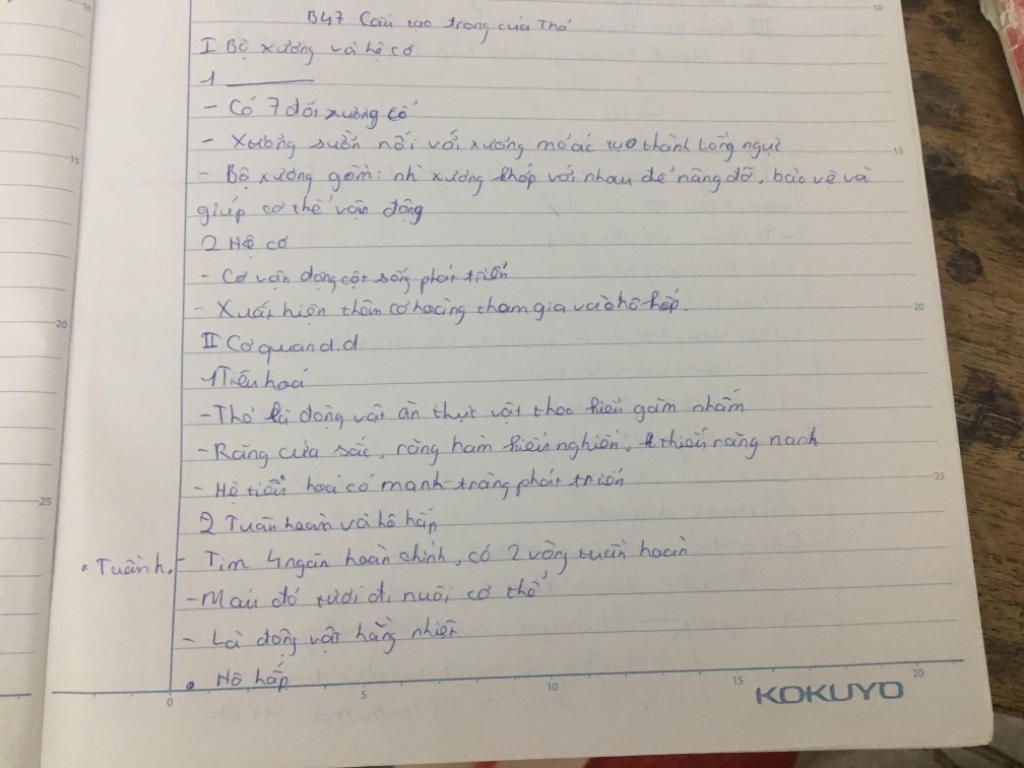 B47 Cấu tạo trong của Thỏ
I Bộ xương và hệ cơ
1
- Có 7 đốt xương cổ
- Xương sườn nối với xương mỏ ác tạo thành lồng ngực
- Bộ xương gồm: nh` xương khớp với nhau để nâng đỡ, bảo vệ và
giúp cơ thể vận động
2 Hệ cơ
- Cơ vận động cột sống phát triển
- Xuất hiện thêm cơ hoành tham gia vào hô hấp.
II Cơ quan d.d
1 Tiêu hoá
- Thỏ là động vật ăn thực vật theo kiểu gặm nhấm
- Răng cửa sắc, răng hàm kiểu nghiền, thiếu răng nanh
- Hệ tiêu hoá có manh tràng phát triển
2 Tuần hoàn và hô hấp
• Tuần h. - Tim 4 ngăn hoàn chỉnh, có 2 vòng tuần hoàn
- Máu đỏ tươi đi nuôi cơ thể
- Là động vật hằng nhiệt
• Hô hấp
0 5 10 15 20
KOKUYO
10
15
20
25
15
20
25